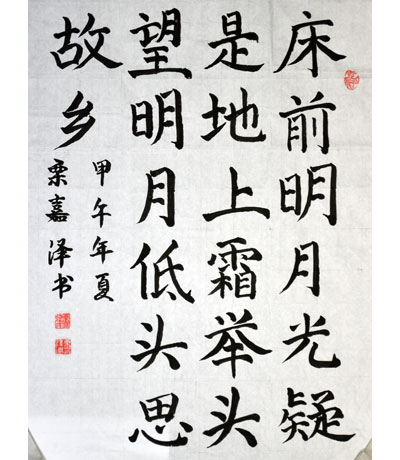 床前明月光疑
是地上霜举头
望明月低头思
故乡
甲午年夏
栗嘉泽书